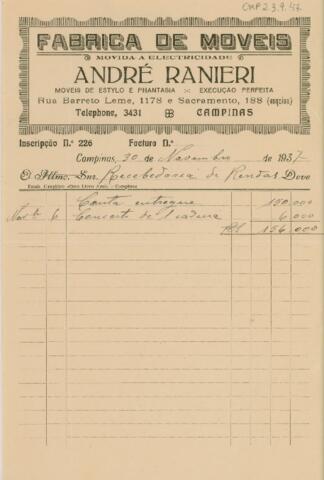 CMP2.3.9.47
FABRICA DE MOVEIS
MOVIDA A ELECTRICIDADE
ANDRÉ RANIERI
MOVEIS DE ESTYLO E PHANTASIA × EXECUÇÃO PERFEITA
Rua Barreto Leme, 1178 e Sacramento, 188 (esquina)
Telephone, 3431 CAMPINAS
Inscripção N.º 226 Factura N.º
Campinas, 30 de Novembro de 1937
O Illmo. Snr. Recebedoria de Rendas Deve
Conta entregue 150,000
Novb. 6 Concerto de 1 cadeira 6,000
Rs 156,000